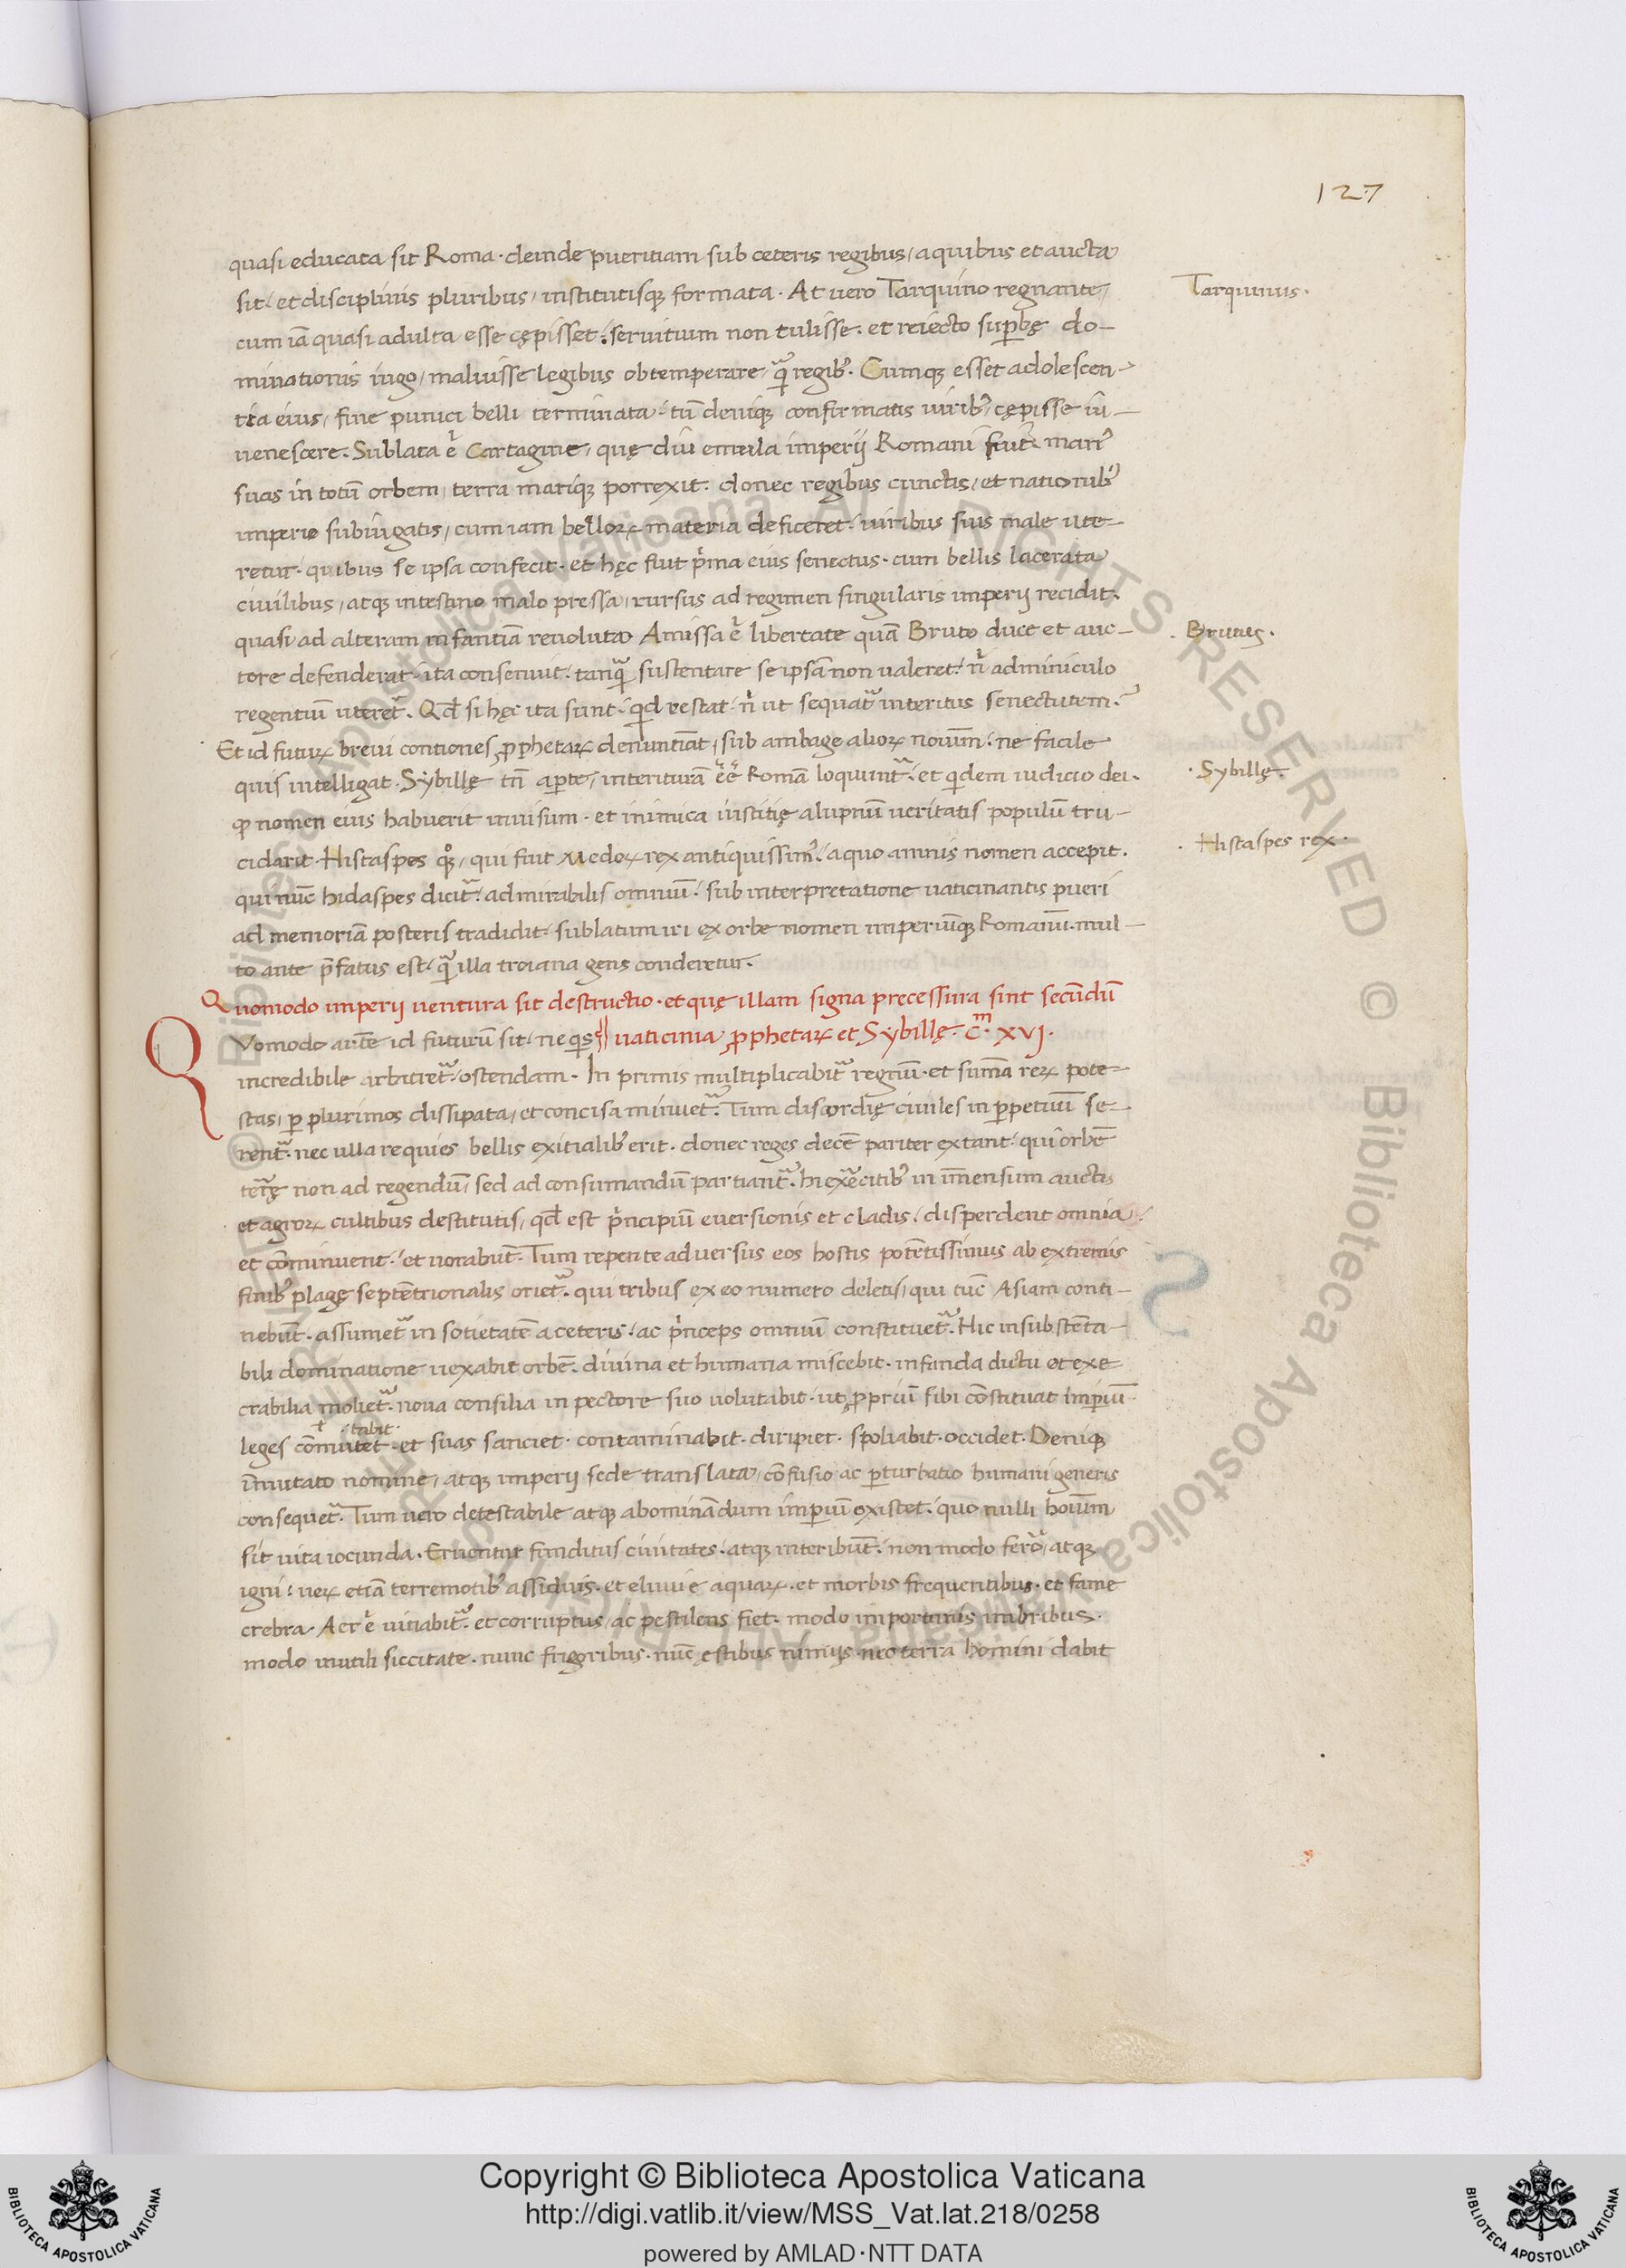 127
quasi educata sit Roma · deinde pueritiam sub ceteris regibus / a quibus et aucta
sit / et disciplinis pluribus / institutisqꝫ formata · At uero Tarquino regnante /
Tarquinus ·
cum iã quasi adulta esse cępisset : seruitium non tulisse · et reiecto suꝑbę do-
minationis iugo / maluisse legibus obtemperare / qᷓ regibꝰ · Cumqꝫ esset adolescen-
tia eius / fine punici belli terminata · tũ deniqꝫ confirmatis uiribꝰ / cępisse iu-
uenescere · Sublata .n. Cartagine / quę diu emula imperij Romani fuit manꝰ
suas in totũ orbem / terra mariqꝫ porrexit · donec regibus cunctis / et nationibꝰ
imperio subiugatis / cum iam belloꝝ materia deficeret / uiribus suis male ute-
retur · quibus se ipsa confecit · et hęc fuit pⁱma eius senectus · cum bellis lacerata
ciuilibus / atqꝫ intestino malo pressa / rursus ad regimen singularis imperij recidit ·
quasi ad alteram infantiã reuoluta Amissa .n. libertate quã Bruto duce et auc-
· Brutus ·
tore defenderat · ita consenuit · tanqᷓ sustentare se ipsã non ualeret / nⁱ adminiculo
regentiũ uteretᷓ · Qđ si hęc ita sunt · qⁱd restat · nⁱ ut sequatᷓ interitus senectutem ·
Et id futuꝝ breui contiones ꝓphetaꝝ denuntiãt / sub ambage alioꝝ noiũm · ne facile
quis intelligat · Sybillę tñ aꝑte / interiturã eẽ Romã loquuntᷓ · et qⁱdem iudicio dei ·
· Sybillę ·
ꝙ nomen eius habuerit inuisum · et inimica iustitię alupnũ ueritatis populũ tru-
cidarit · Histaspes qꝫ / qui fuit Medoꝝ rex antiquissimꝰ / a quo amnis nomen accepit ·
· Histaspes rex ·
qui nũc hidaspes dicitᷓ / admirabilis omniũ · sub interpretatione uaticinantis pueri
ad memoriã posteris tradidit · sublatum iri ex orbe nomen imperiũqꝫ Romanũ · mul-
to ante p̃fatus est · qᷓ illa troiana gens conderetur ·
Quomodo imperij uentura sit destructio · et quę illam signa precessura sint secundũ
uaticinia ꝓphetaꝝ et Sybillę · C̃m · XVI ·
QVomodo autẽ id futurũ sit · ne qⁱs
incredibile arbitretᷓ / ostendam · In primis multiplicabitᷓ regnũ · et sum̃a reꝝ pote-
stas / ꝑ plurimos dissipata / et concisa minuetᷓ · Tum discordię ciuiles in ꝑpetuũ se-
rentᷓ · nec ulla requies bellis exitialibꝰ erit · donec reges decẽ pariter extant · qui orbẽ
terrę non ad regendũ / sed ad consumandũ partiantᷓ · hi exercitibꝰ in im̃ensum auctis
et agroꝝ cultibus destitutis / qđ est pⁱncipiũ euersionis et cladis / disperdent omnia /
et cõminuent / et uorabũt · Tum repente aduersus eos hostis potẽtissimus ab extremis
finibꝰ plagę septẽtrionalis orietᷓ · qui tribus ex eo numero deletis / qui tũc Asiam conti-
nebũt · assumetᷓ in sotietatẽ a ceteris / ac pⁱnceps omniũ constituetᷓ · Hic insubstẽta-
bili dominatione uexabit orbẽ · diuina et humana miscebit · infanda dictu et exe-
crabilia molietᷓ · noua consilia in pectore suo uolutabit · ut ꝓpriũ sibi cõstituat imꝑiũ ·
· tabit ·
leges cõmutet · et suas sanciet · contaminabit · diripiet · spoliabit · occidet · Deniqꝫ
im̃utato nomine / atqꝫ imperij sede translata / cõfusio ac ꝑturbatio humani generis
consequetᷓ · Tum uero detestabile atqꝫ abominãdum imꝑiũ existet · quo nulli hoiũm
sit uita iocunda · Eruentur funditus ciuitates · atqꝫ interibũt · non modo ferro / atqꝫ
igni : ueꝝ etiã terremotibꝰ assiduis · et eluuie aquaꝝ · et morbis frequentibus · et fame
crebra · Aer .n. uitiabitᷓ · et corruptus / ac pestilens fiet · modo importunis imbribus ·
modo inutili siccitate · nunc frigoribus · nũc ęstibus nimijs · nec terra homini dabit
Copyright © Biblioteca Apostolica Vaticana
http://digi.vatlib.it/view/MSS_Vat.lat.218/0258
powered by AMLAD·NTT DATA
BIBLIOTECA APOSTOLICA VATICANA
BIBLIOTECA APOSTOLICA VATICANA